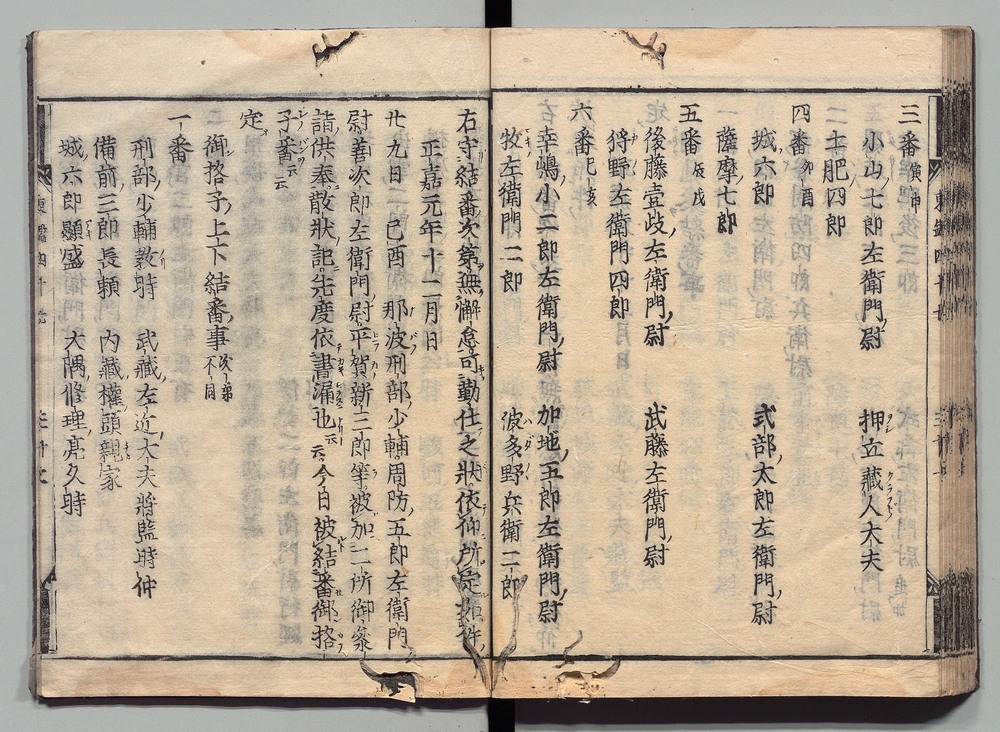 三番 寅申
小山七郎左衛門尉 押立蔵人大夫
土肥四郎
四番 卯酉
城六郎 式部太郎左衛門尉
薩摩七郎
五番 辰戌
後藤壹岐左衛門尉 武藤左衛門尉
狩野左衛門四郎
六番 巳亥
幸嶋小二郎左衛門尉 加地五郎左衛門尉
牧左衛門二郎 波多野兵衛二郎
右守結番次第無懈怠可勤仕之狀依仰所定如件
正嘉元年十二月日
廿九日 己酉 那波刑部少輔周防五郎左衛門
尉善次郎左衛門尉平賀新三郎等被加二所御參
詣供奉散狀訖先度依書漏也云云今日被結番御格
子番云云
定
御格子上下結番事 次第不同
一番
刑部少輔教時 武藏左近大夫將監時仲
備前三郎長頼 内藏權頭親家
城六郎顯盛 大隅修理亮久時